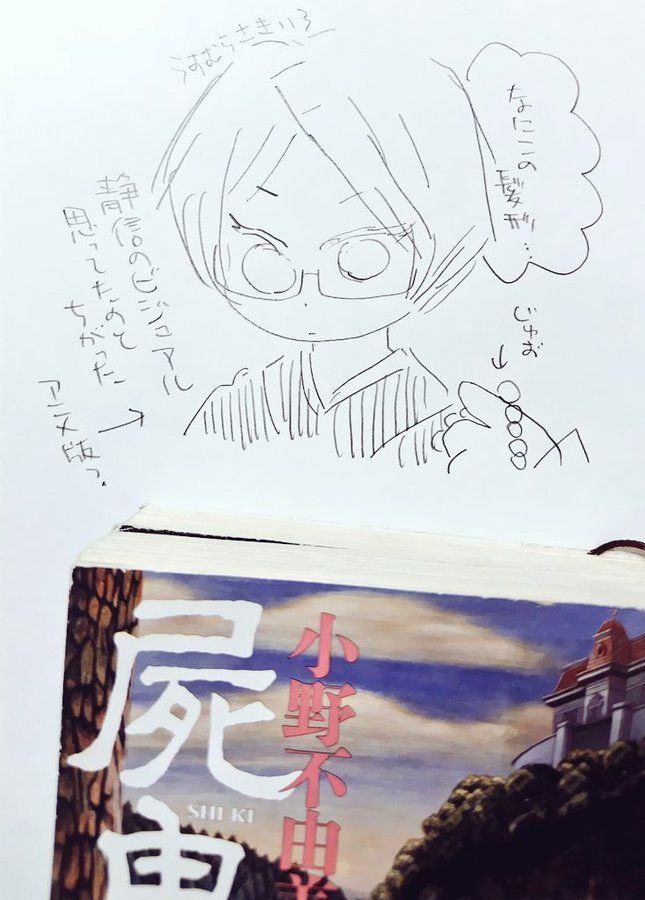 うすむらさきいろ
なにこの髪形…
じゅず
↓
静信のビジュアル
思ってたのと
ちがった
アニメ版っ.
→
小野不由美
屍鬼
SHI KI